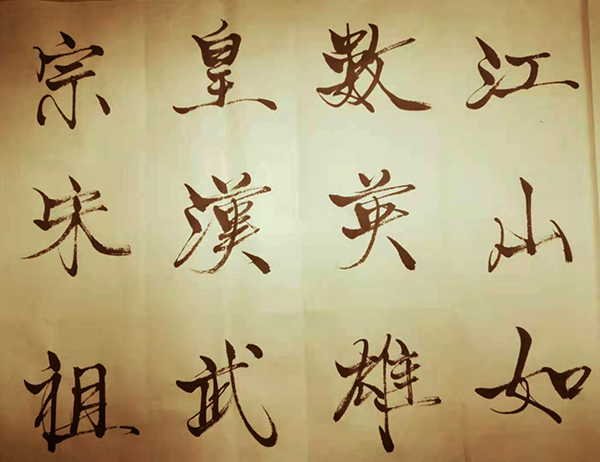 江山如
數英雄
皇漢武
宗宋祖